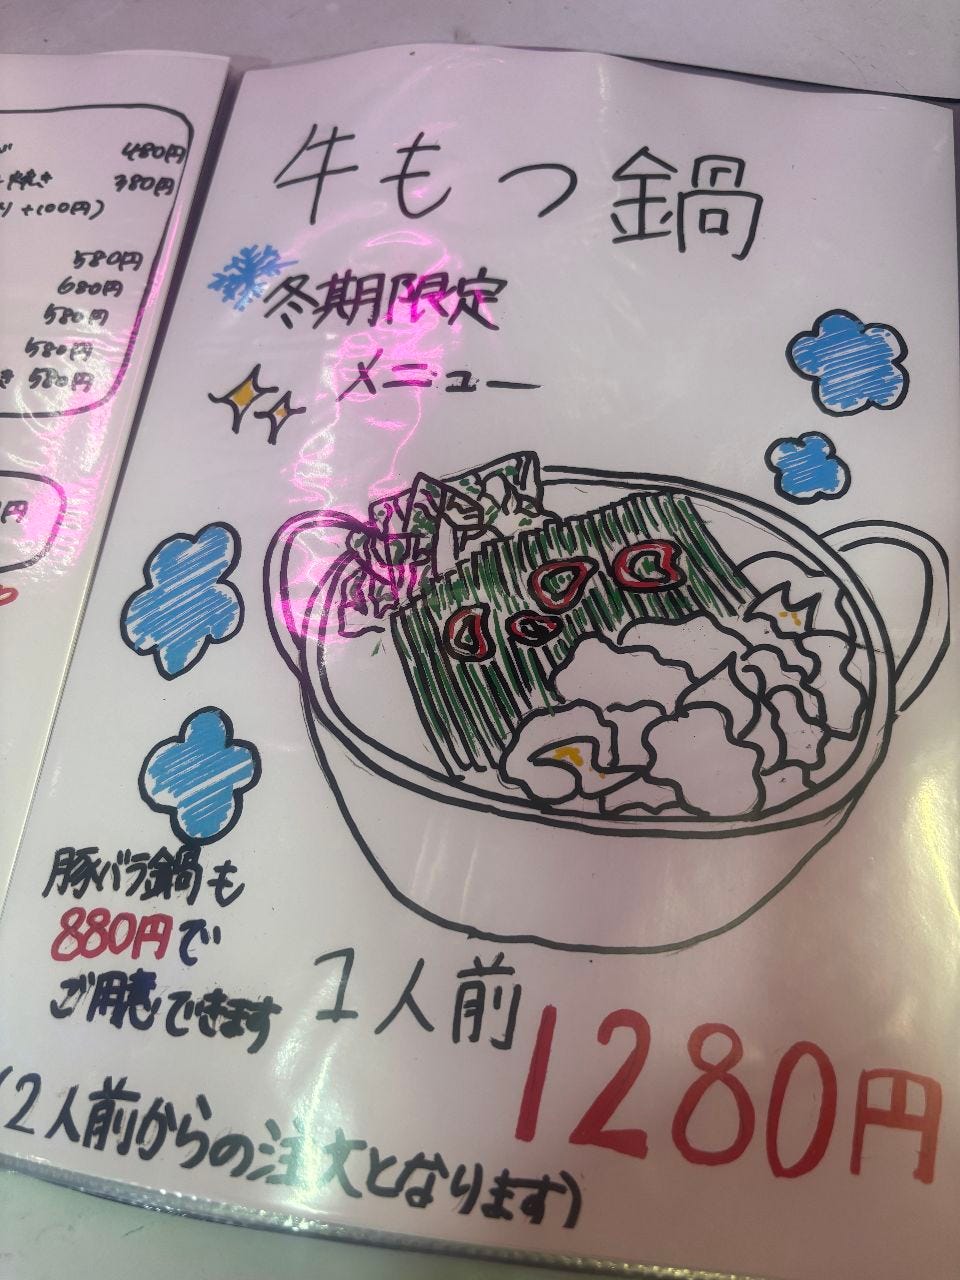 480円
380円
+100円)
580円
680円
580円
580円
き 580円
円
牛もつ鍋
冬期限定
メニュー
豚バラ鍋も
880円で
ご用意できます
1人前
1280円
(2人前からの注文となります)